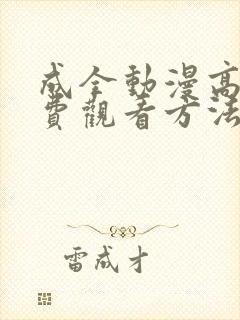 成全動漫高
費觀看方法
雷成才